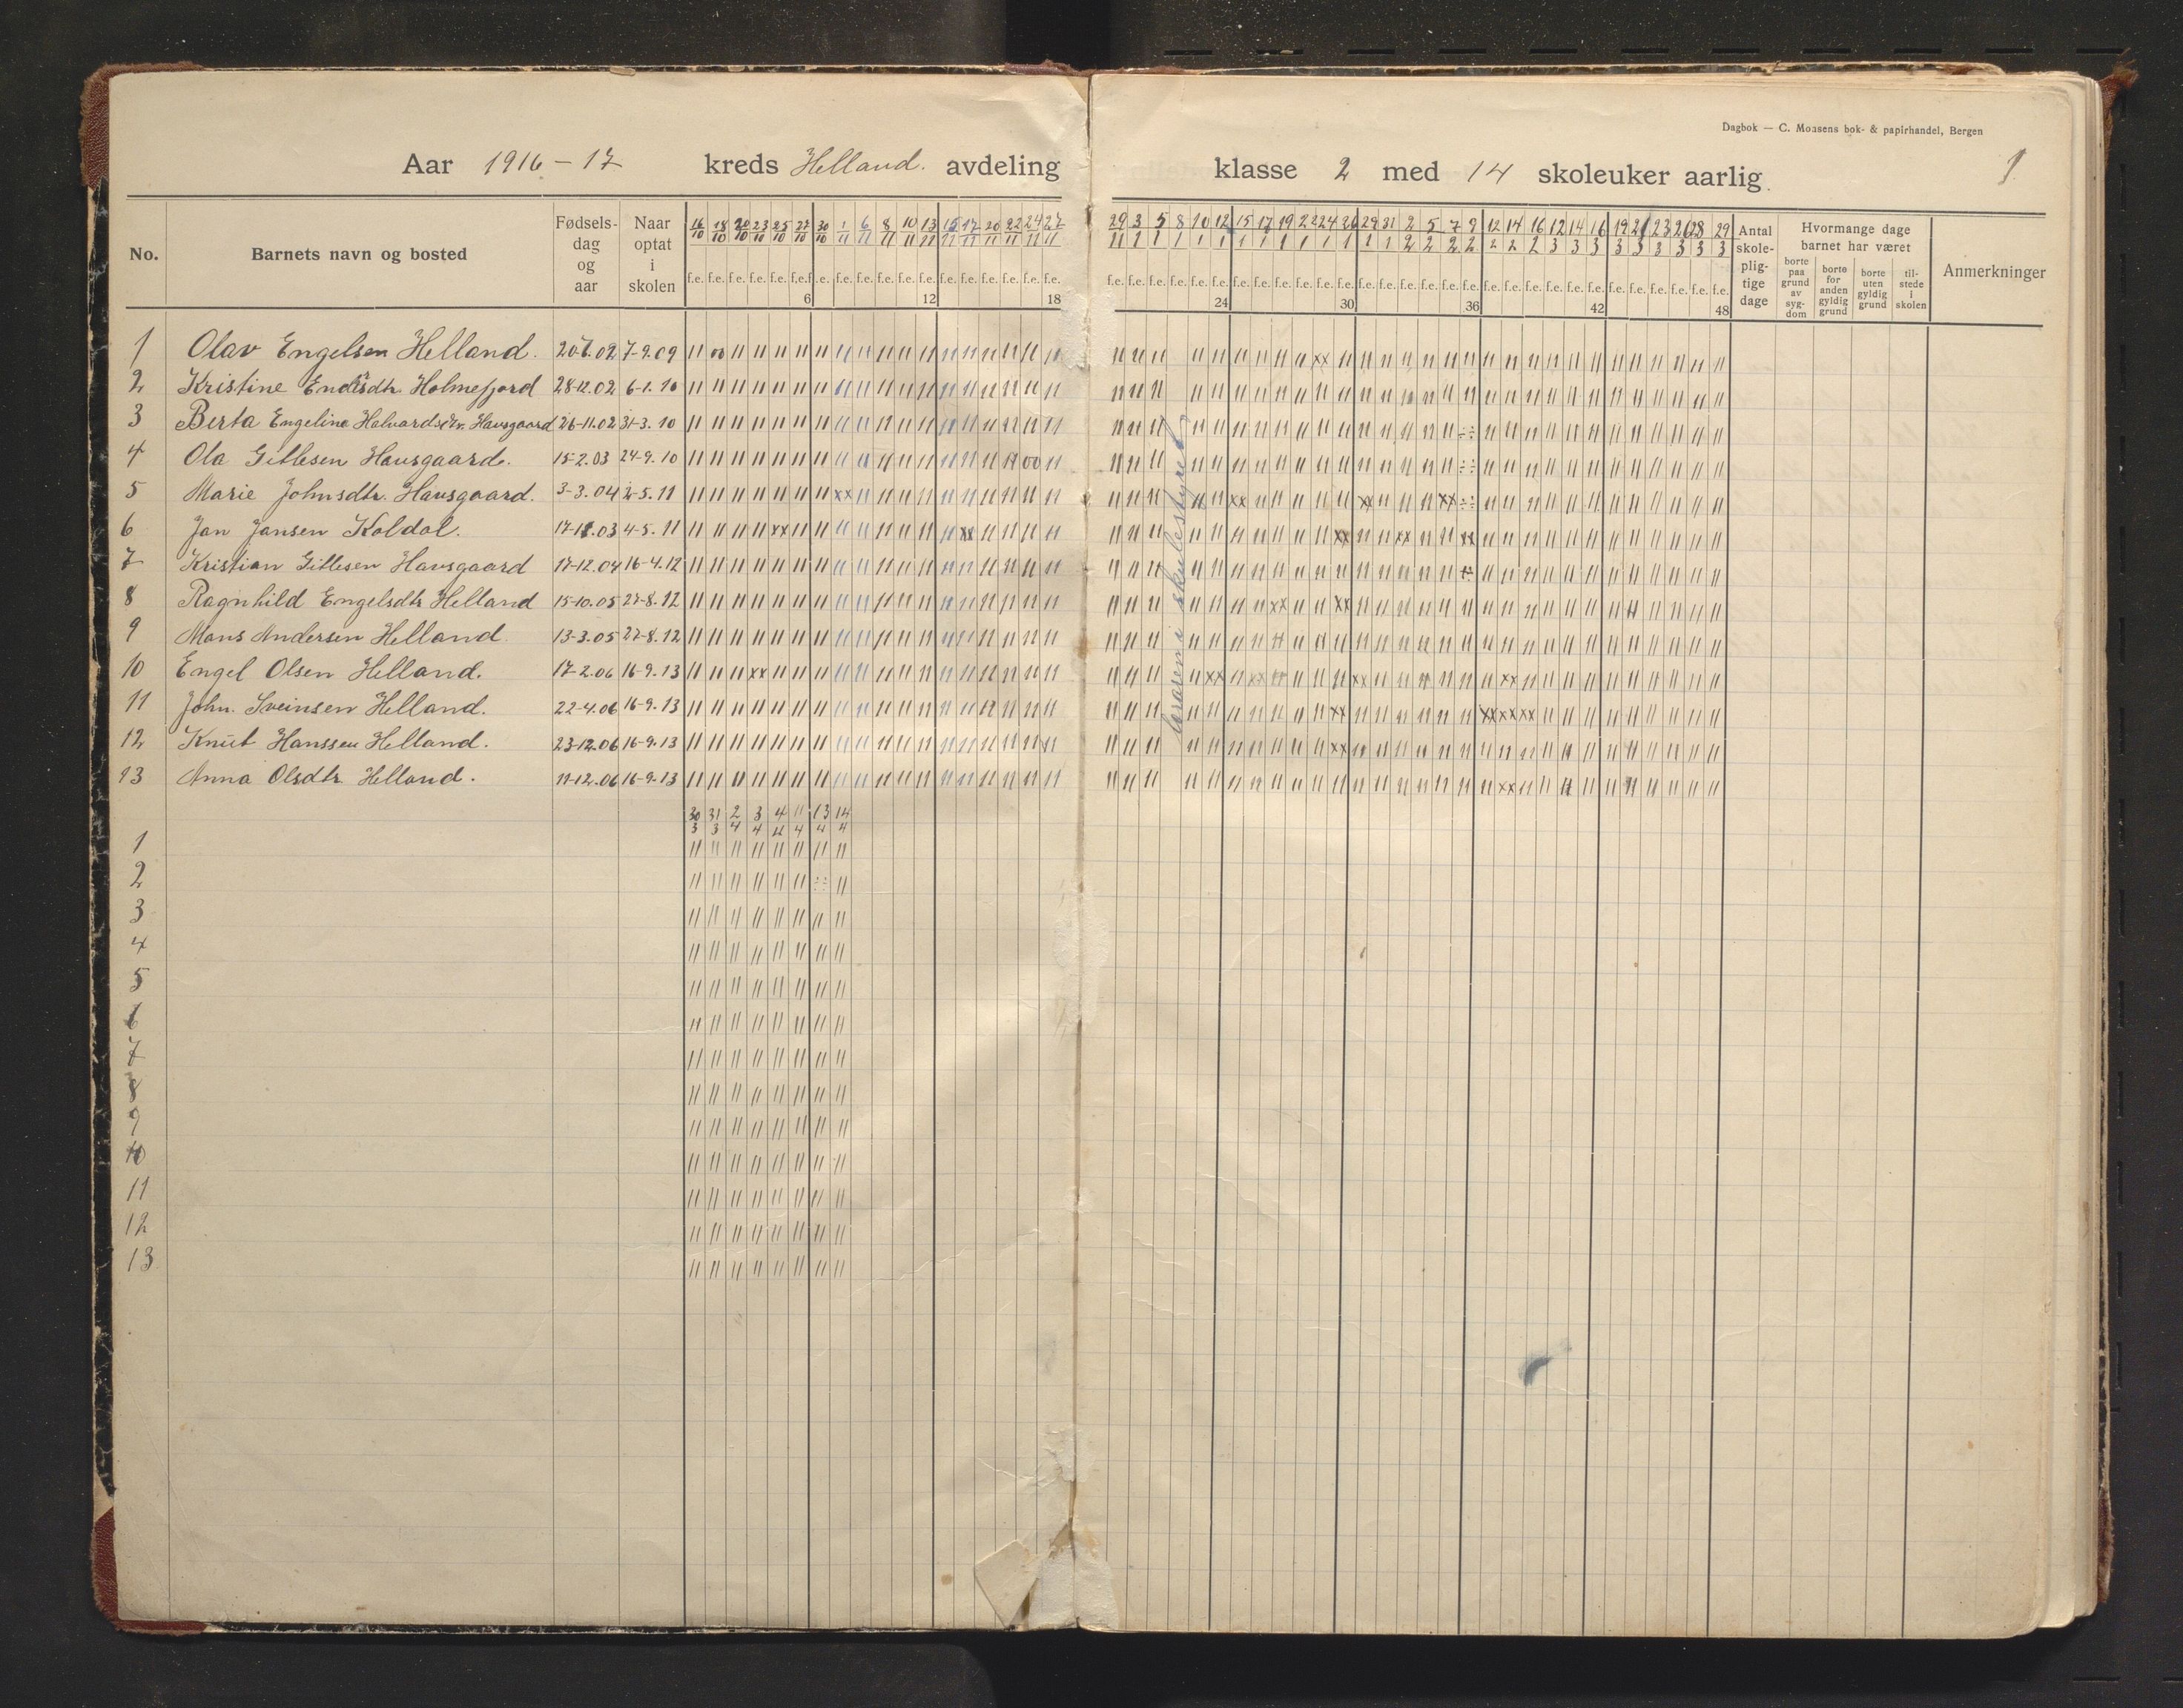 Dagbok — C. Monsens bok- & papirhandel, Bergen
Aar 1916-17 kreds Helland. avdeling klasse 2 med 14 skoleuker aarlig. 1
No. Barnets navn og bosted Fødsels-dag og aar Naar optat i skolen
16/10 18/10 20/10 23/10 25/10 27/10 30/10 1/11 6/11 8/11 10/11 13/11 15/11 17/11 20/11 22/11 24/11 27/11
29/11 3/1 5/1 8/1 10/1 12/1 15/1 17/1 19/1 22/1 24/1 26/1 29/1 31/1 2/2 5/2 7/2 9/2 12/2 14/2 16/2 12/3 14/3 16/3 19/3 21/3 23/3 26/3 28/3 29/3
f.e. f.e. f.e. f.e. f.e. f.e. f.e. f.e. f.e. f.e. f.e. f.e. f.e. f.e. f.e. f.e. f.e. f.e.
6 12 18 24 30 36 42 48
Antal skole-plig-tige dage
Hvormange dage barnet har været
borte paa grund av syg-dom
borte for anden gyldig grund
borte uten gyldig grund
til-stede i skolen
Anmerkninger
1 Olav Engelsen Helland. 7-9.09
2 Kristine Holmefjord 28-12.02 6-1.10
3 Berta Engelina Halvardsdtr. Havsgaard 26-11.02 31-3.10
4 Ola Gitlesen Havsgaard. 15-2.03 24-9.10
5 Marie Johnsdtr. Havsgaard. 3-3.04 2-5.11
6 Jan Jansen Koldal. 4-5.11
7 Kristian Gitlesen Havsgaard 17-12.04 16-4.12
8 Ragnhild Engelsdtr Helland 15-10.05 27-8.12
9 Mons Andersen Helland 13-3.05 27-8.12
10 Engel Olsen Helland. 17-2.06 16-9.13
11 John. Sveinsen Helland. 22-4.06 16-9.13
12 Knut Hanssen Helland. 23-12.06 16-9.13
13 Anna Olsdtr. Helland. 11-12.06 16-9.13
læraren i skulestyret
30/3 31/3 2/4 3/4 4/4 11/4 13/4 14/4
1
2
3
4
5
6
7
8
9
10
11
12
13